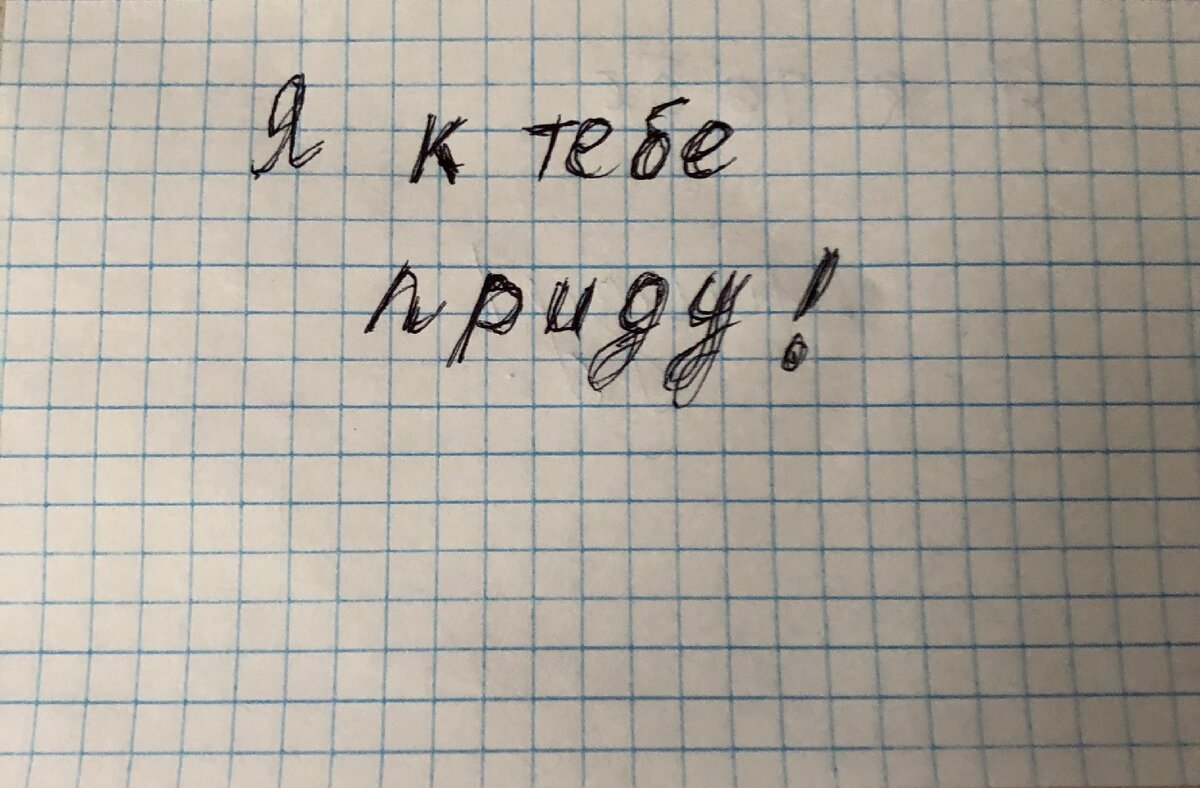 Я к тебе
приду!